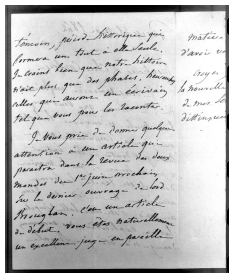 témoin, pièce historique qui
formera un tout à elle seule.
Je crains bien que notre histoire
n'ait plus que des phases,
celles qui auront un écrivain
tel que vous pour les raconter.
Je vous prie de donner quelque
attention à un article qui
paraîtra dans la revue des deux
mondes du 1er juin prochain,
sur le dernier ouvrage de lord
Brougham. c'est un article
de début, vous êtes naturellement
un excellent juge en pareille
matiè
d'avoir
croyez
la nouvelle
de mes
distingués